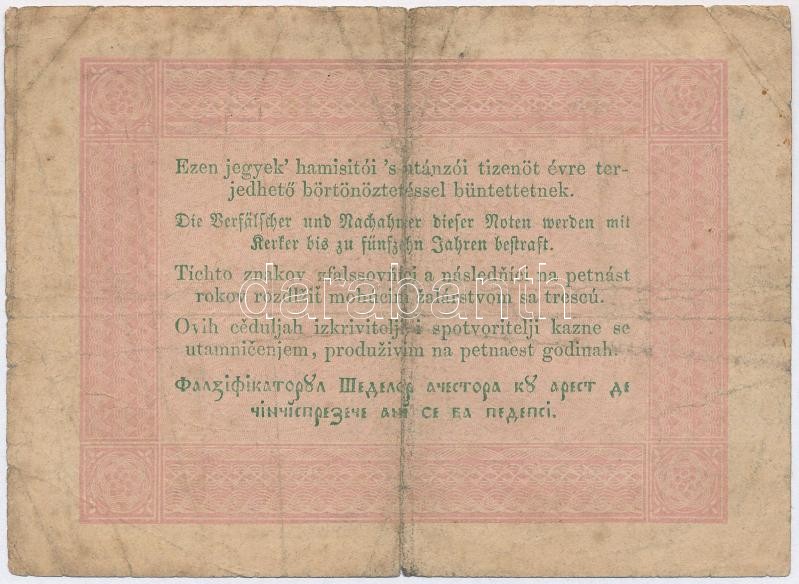 Ezen jegyek' hamisitói 's utánzói tizenöt évre ter-
jedhető börtönöztetéssel büntettetnek.
Die Verfälscher und Nachahmer dieser Noten werden mit
Kerker bis zu fünfzehn Jahren bestraft.
Tíchto znakov zfalssovníci a následňíci na petnást
rokov rozdlžiť mohúcim žalárstvom sa trescú.
darabanth
Ovih cěduljah izkrivitelji i spotvoritelji kazne se
utamničenjem, produživim na petnaest godinah.
Фалзіфікаторꙋл Шеделор ачестора кꙋ арест де
чінчіспрезече ані се ва педепсі.